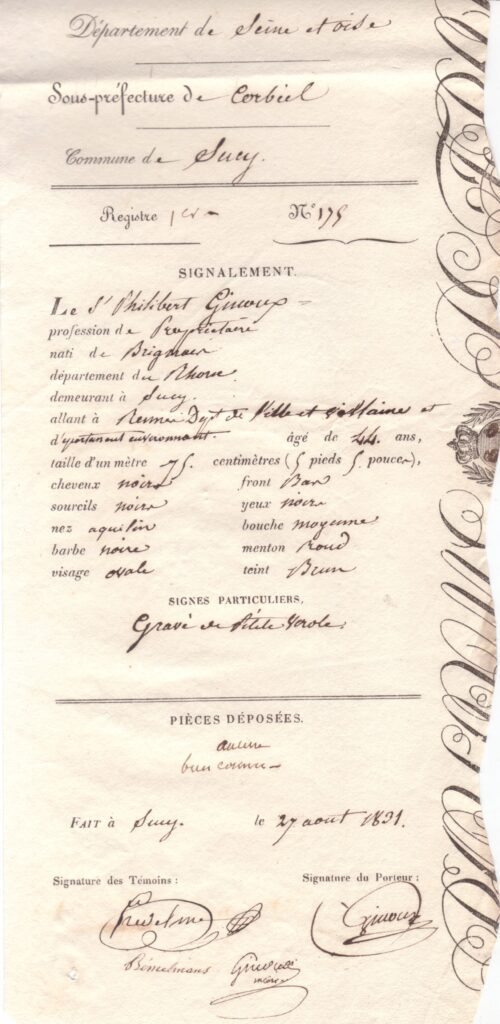 Département de Seine et oise
Sous-préfecture de Corbiel
Commune de Sucy.
Registre 1er N° 175
SIGNALEMENT.
Le Sr Philibert Ginoux
profession de Propriétaire
nati de Brignais
département du Rhone
demeurant à Sucy.
allant à Rennes Dept de Ville et Vilaine et
d'epartement environnant. âgé de 44 ans,
taille d'un mètre 75. centimètres (5 pieds 5 pouces),
cheveux noirs front Bas
sourcils noirs yeux noirs
nez aquilin bouche moyenne
barbe noire menton Rond
visage ovale teint Brun
SIGNES PARTICULIERS,
Gravé de Petite Verole.
PIÈCES DÉPOSÉES.
aucune
bien connu
FAIT à Sucy. le 27 aout 1831.
Signature des Témoins : Signature du Porteur :
Ginoux